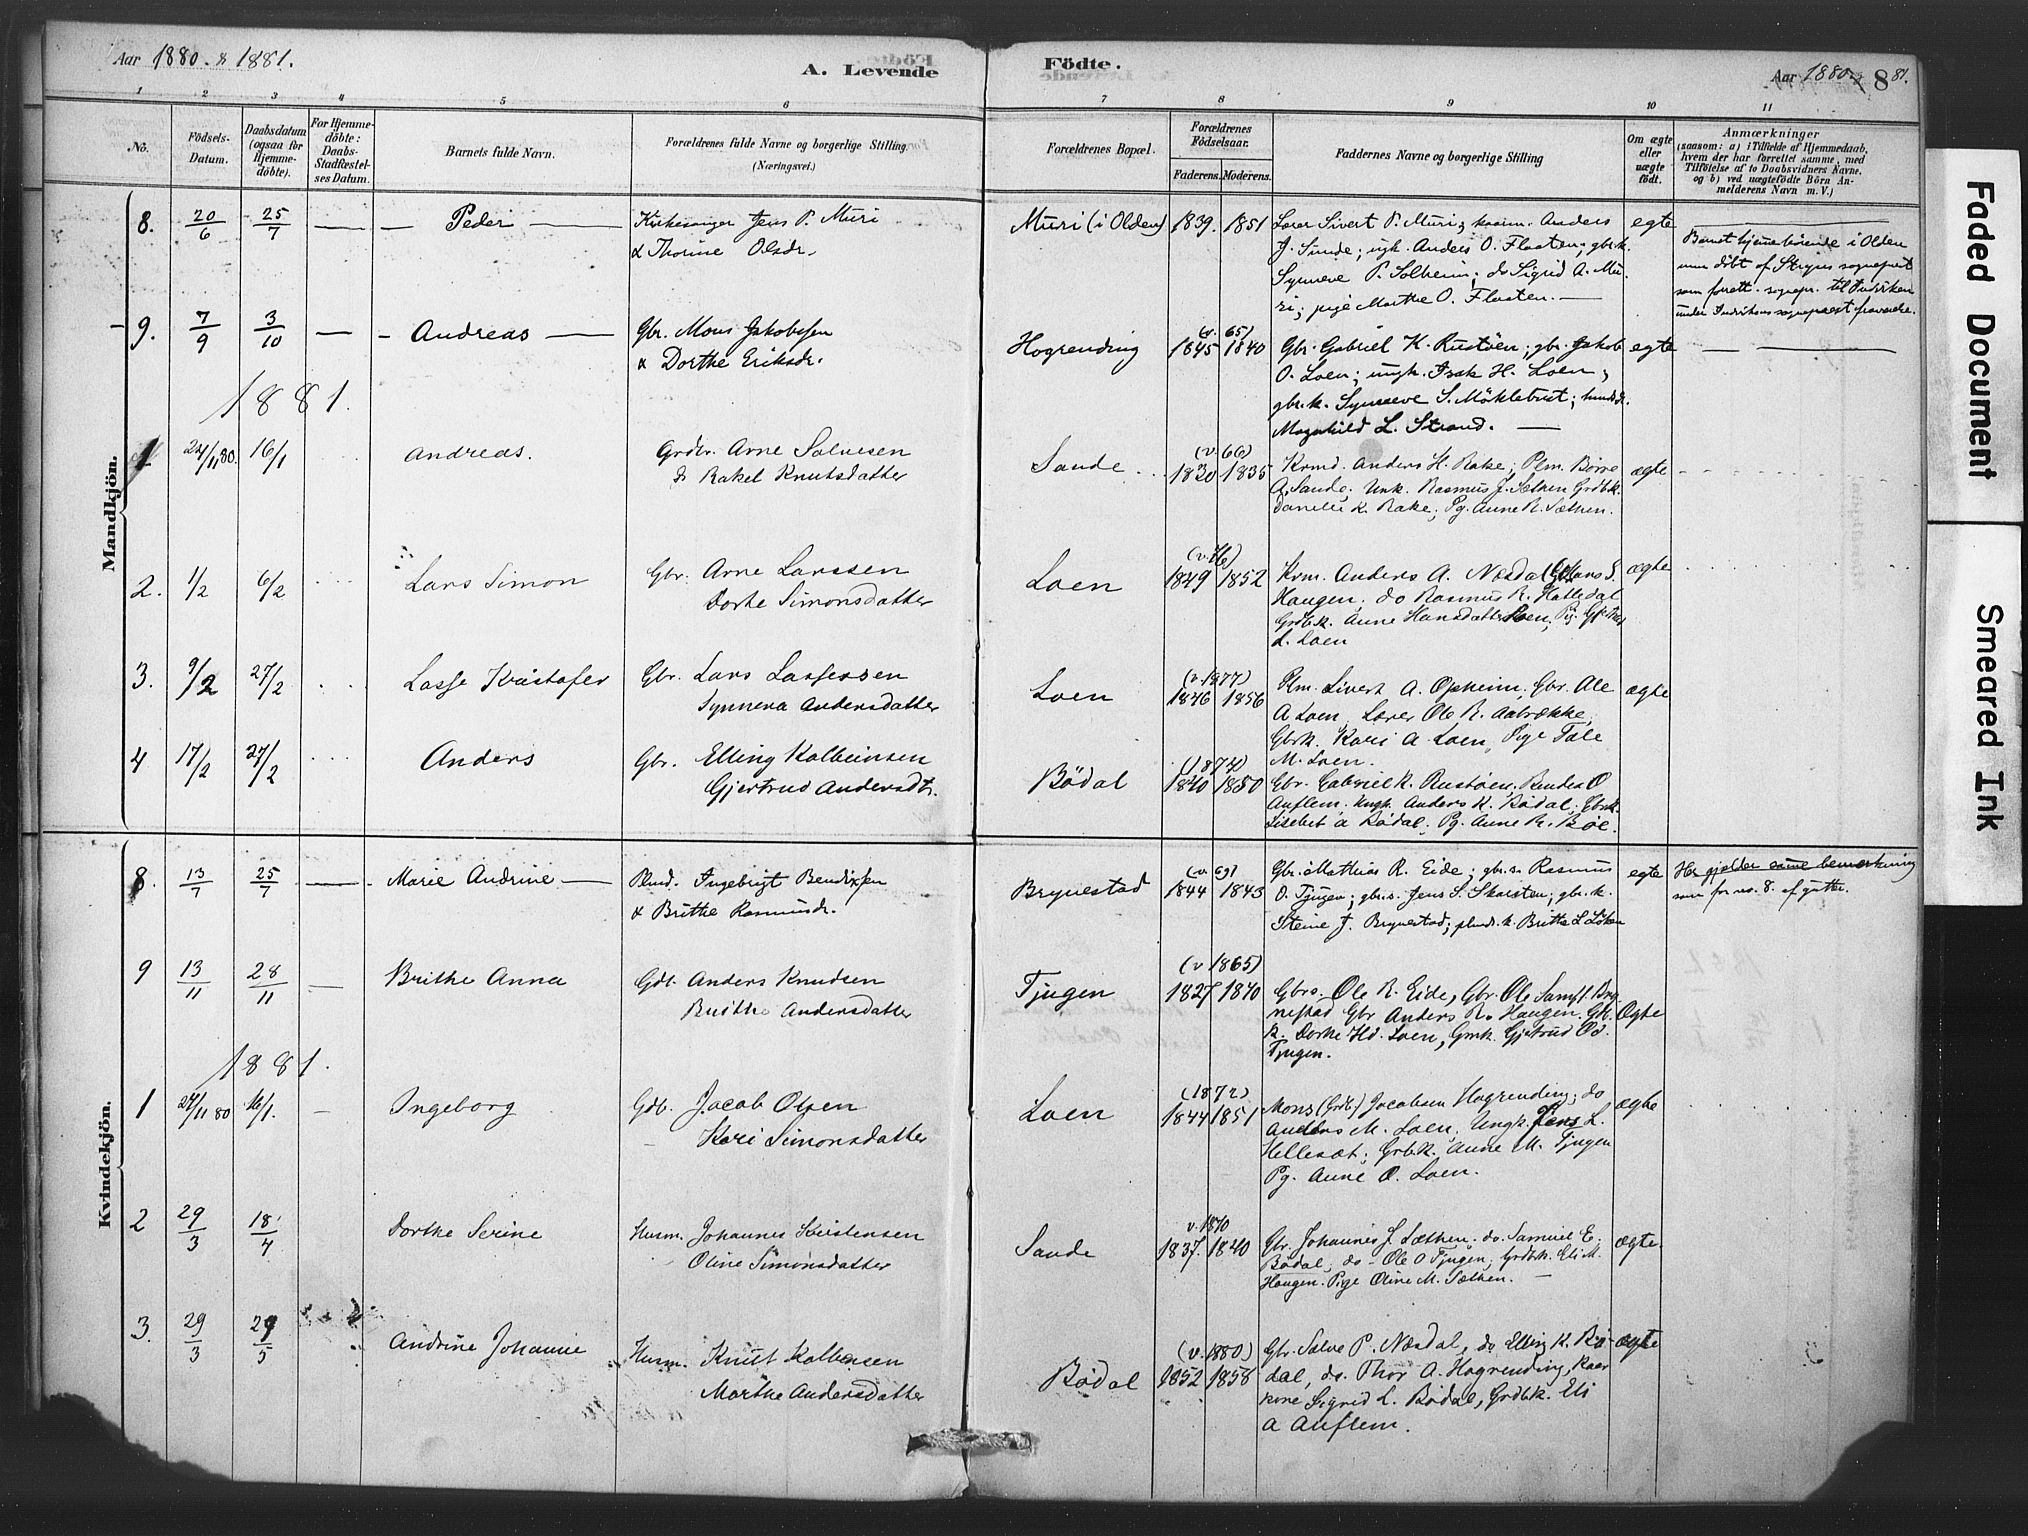 Aar 1880 & 1881.
A. Levende
Födte.
Aar 1880 & 81.
8
1 2 3 4 5 6 7 8 9 10 11
No.
Födsels-Datum.
Daabsdatum (ogsaa for Hjemmedöbte).
For Hjemmedöbte: Daabs-Stadfæstelses Datum.
Barnets fulde Navn.
Forældrenes fulde Navne og borgerlige Stilling. (Næringsvei.)
Forældrenes Bopæl.
Forældrenes Födselsaar.
Faderens. Moderens.
Faddernes Navne og borgerlige Stilling
Om ægte eller uægte födt.
Anmærkninger (saasom: a) i Tilfælde af Hjemmedaab, hvem der har forrettet samme, med Tilföielse af to Daabsvidners Navne, og b) ved uægtefödte Börn Anmelderens Navn m. V.)
Mandkjön.
8. 20/6 25/7 — Peder — Kirkesanger Jens P. Muri
& Thorine Olsdr.
Muri (i Olden) 1839. 1851
Lærer Sivert P. Muri; Anders
J. Sunde; ugk. Anders O. Flaaten; gbr.k.
Synneve P. Solheim; do Sigrid A. Mu-
ri; pige Marthe O. Flaaten. —
egte
Barnet hjemmehörende i Olden
men döbt af Stryns sognepræst
9. 7/9 3/10 — Andreas — Gbr. Mons Jakobssen
& Dorthe Eriksdr.
Hogrending (v. 65) 1845 1840
Gbr. Gabriel K. Rustöen; gbr. Jakob
O. Loen; ungk. Isak H. Loen;
gbr.k. Synneve S. Möklebust;
Magnhild L. Strand. —
egte
1881.
1 24/11 80. 16/1 Andreas. Grdbr. Arne Salvesen
& Rakel Knutsdatter
Sande (v. 66) 1830 1835
Krmd. Anders H. Rake; Plm. Börre
A. Sande; Unk. Rasmus J. Sæthen Grdbk.
Danielle K. Rake; Pg. Anne R. Sæthen.
ægte
2. 1/2 6/2 Lars Simon Gbr. Arne Larssen
Dorte Simonsdatter
Loen (v. 76) 1849 1852
Krm. Anders A. Næsdal Hans S.
Haugen, do Rasmus R. Hatledal
Grdbk. Anne Hansdatter Loen, Pig.
L. Loen
ægte
3. 9/2 27/2 Lasse Kristofer Gbr. Lars Lassessen
Synneva Andersdatter
Loen (v. 1877) 1846 1856
Plm. Sivert A. Opheim. Gbr. Ole
A Loen, Lærer Ole R. Aabrække,
Gbrk. Kari A Loen, Pige Tale
M. Loen.
ægte
4 17/2 27/2 Anders Gbr. Elling Kolbeinsen
Gjertrud Andersdtr.
Bödal (1874) 1840 1850
Gbr. Gabriel K. Rustöen, O
Auflem. Ungk. Anders K. Bödal, Gbrk.
Lisebet A Bödal, Pg. Anne R. Böe.
Kvindekjön.
8. 13/7 25/7 — Marie Andrine — Plmd. Ingebrigt Bendixsen
& Brithe Rasmusdr.
Brynestad (v. 69) 1844 1843
Gbr. Mathias R. Eide; gbr.s. Rasmus
O. Tjugen; gbr.s. Jens S. Skarsten; gbr.k.
Steine J. Brynestad; plmds.k. Brithe L Löken
egte
Her gjælder samme bemærkning
som for no. 8. af gutter.
9 13/11 28/11 — Brithe Anna Gdb. Anders Knudsen
Brithe Andersdatter
Tjugen (v 1865) 1827 1840
Gbrs. Ole R. Eide, Gbr. Ole Bry-
nestad Gbr Anders R. Haugen, Gb.
k. Dorthe Hd. Loen, Gmk. Gjertrud Od.
Tjugen.
Ægte
1881.
1 24/11 80 16/1. — Ingeborg Gdb. Jacob Olsen
Kari Simonsdatter
Loen (1872) 1844 1851
Mons (Grdb.) Jacobsen Hogrending; do
Anders M. Loen, Ungk. Jens L.
Hellesæt; Grbk. Anne M. Tjugen
Pg. Anne O. Loen.
ægte
2 29/3 18/4 Dorthe Serine Husm. Johannes Kristensen
Oline Simonsdatter
Sande v. 1870 1837. 1840
Gbr. Johannes J. Sæthen; do. Samuel E.
Bödal, do – Ole O Tjugen, Grdbk. Eli M.
Haugen. Pige Oline M. Sæthen. —
ægte.
3. 29/3 29/5 Andrine Johanne Husm. Knut Kolbensen
Marthe Andersdatter
Bödal (v. 1880) 1852 1858
Gbr. Salve P. Næsdal, do Elling K. Bö-
dal, do. Thor A. Hogrending, Kaar
kone Sigrid L. Bödal, Grdbk. Eli
A Auflem.
ægte
Faded Document
Smeared Ink